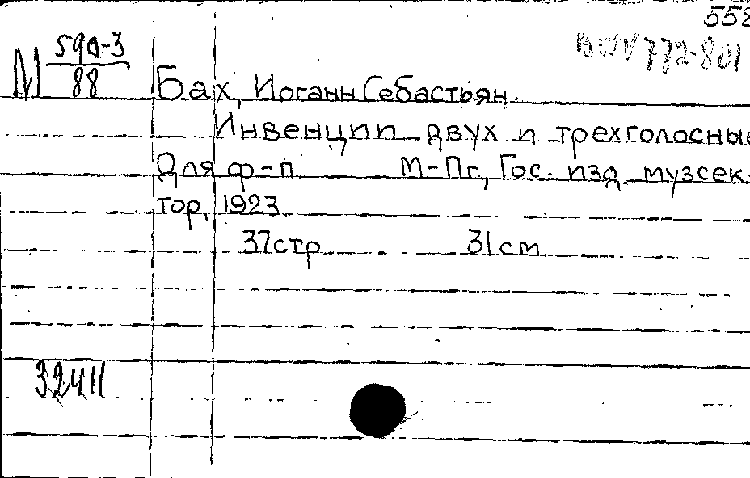 558
М 59а-3
88
Бах, Иоганн Себастьян
Инвенции двух и трехголосные
Для ф-п М-Пг, Гос. изд. музсек-
тор, 1923
37 стр 31 см
32411